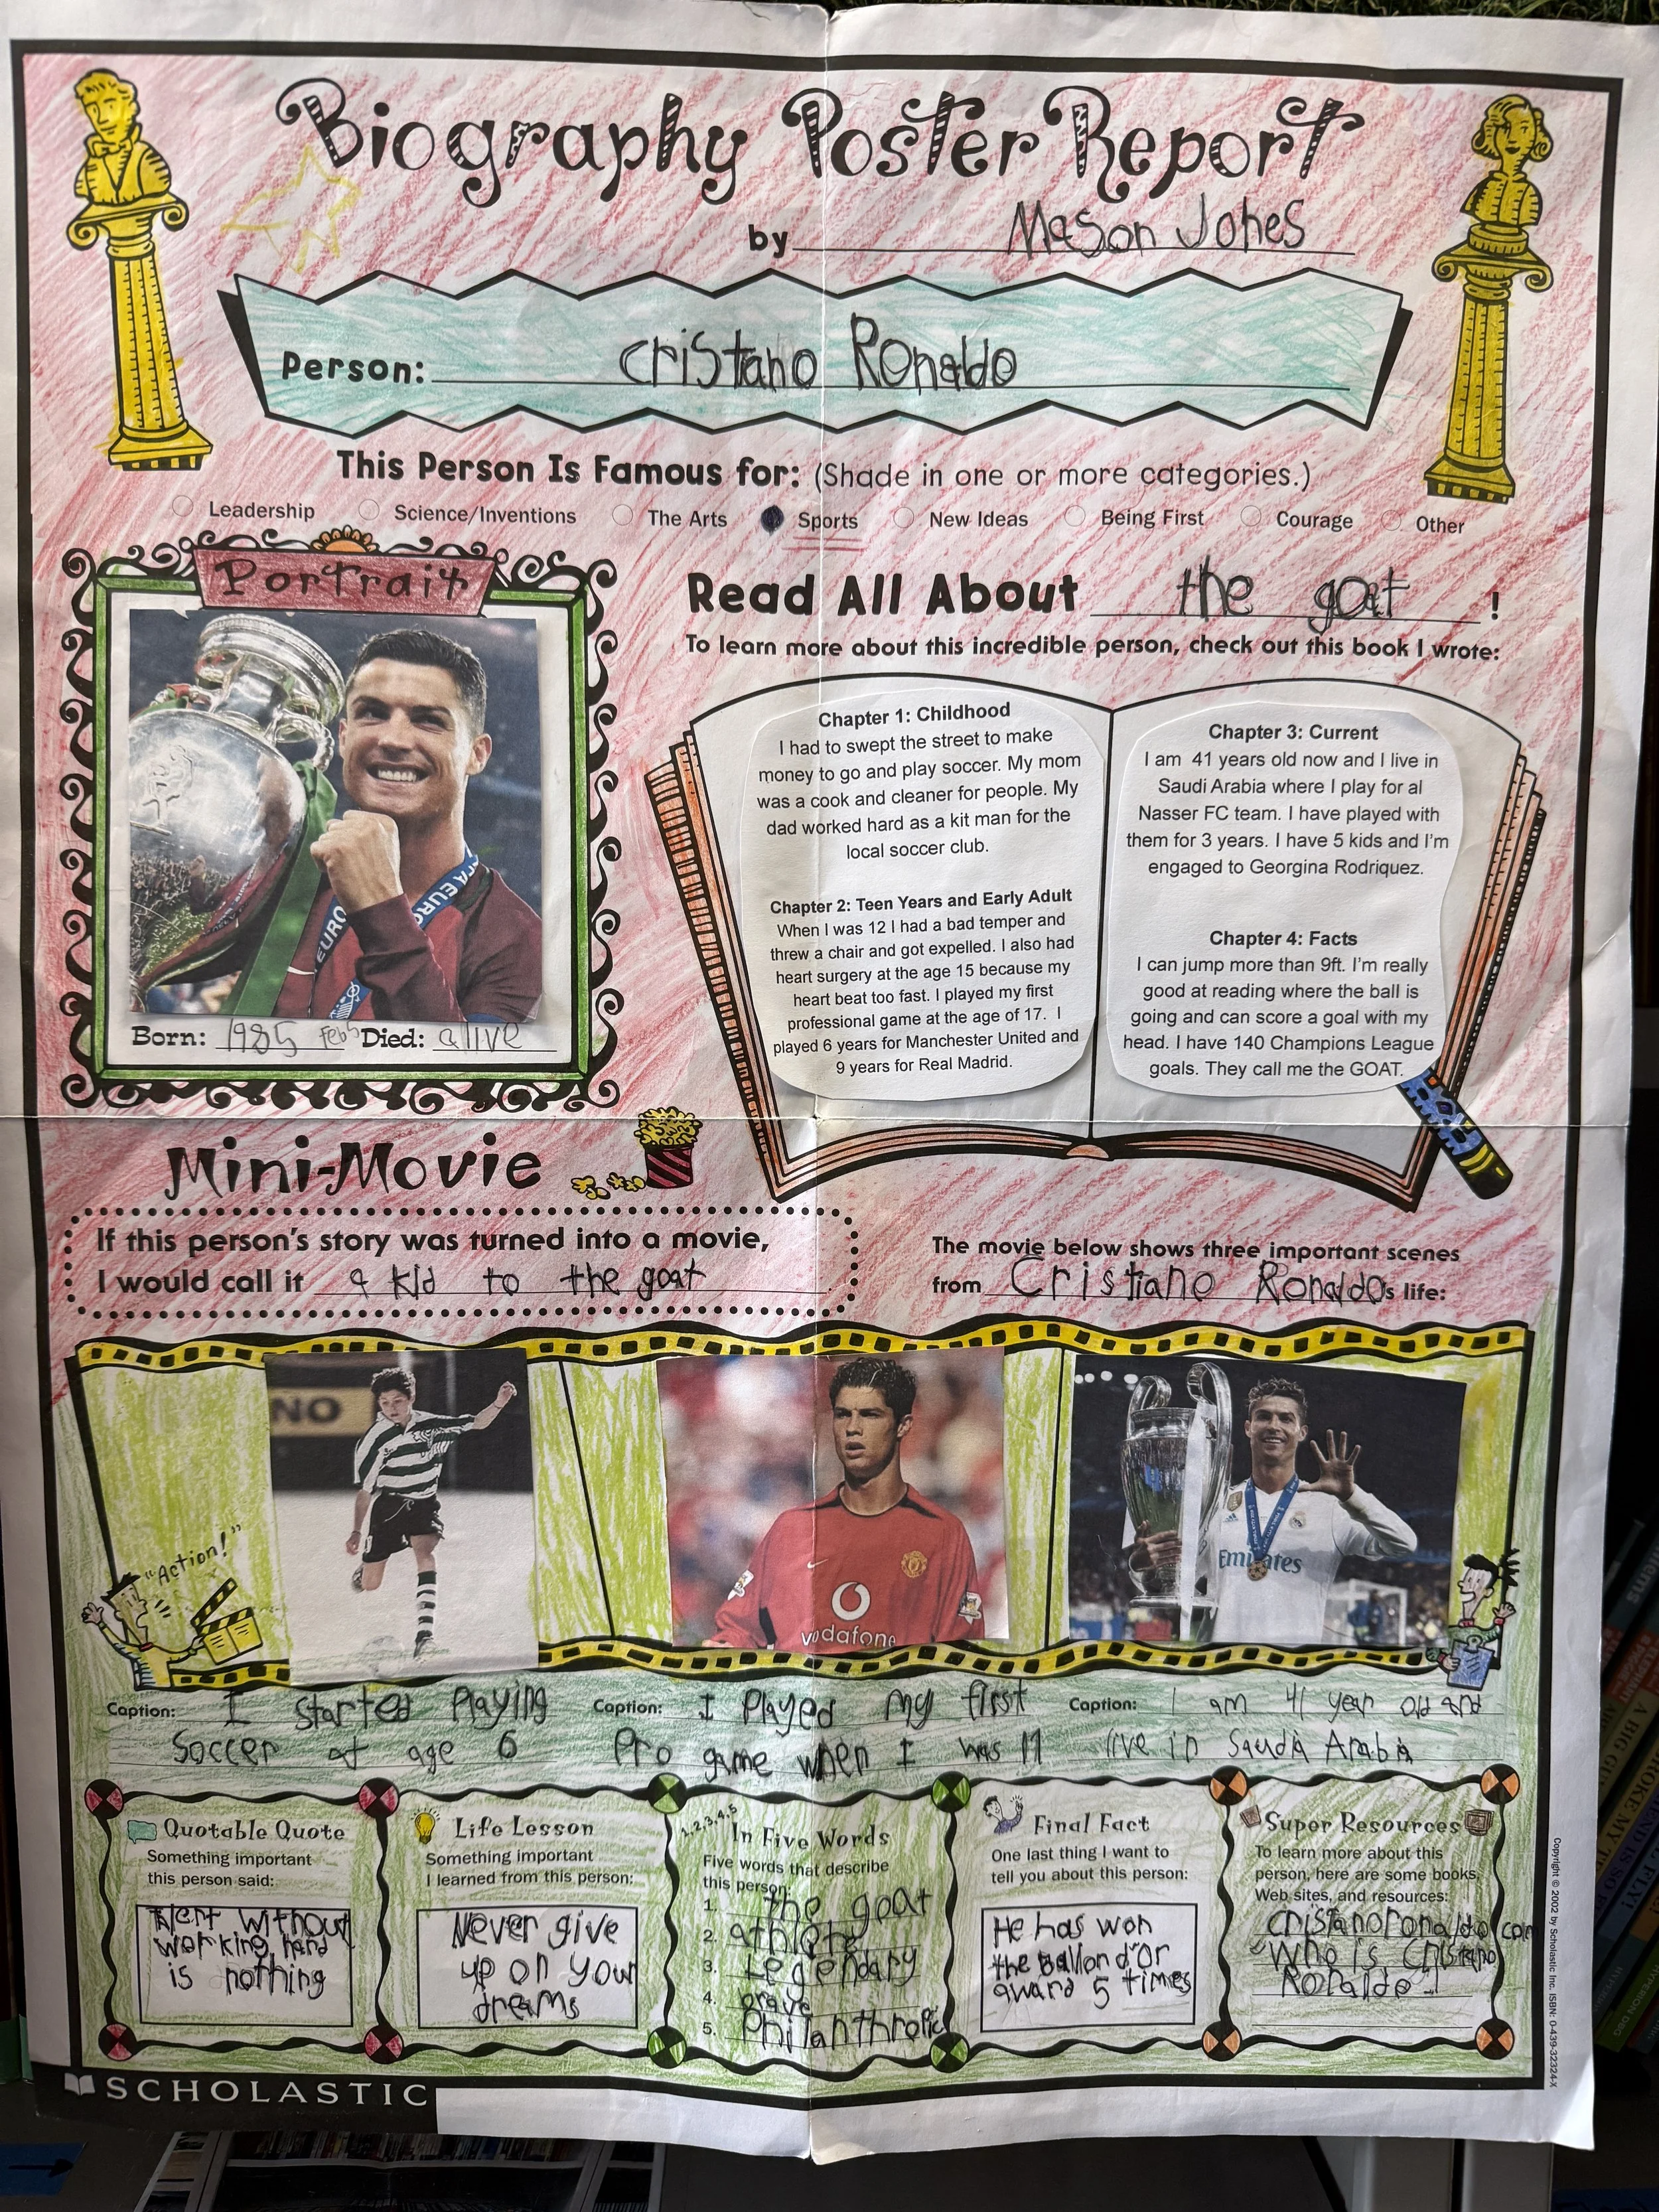 Biography Poster Report
by Mason Johes
Person: cristano Ronaldo
This Person Is Famous for: (Shade in one or more categories.)
Leadership Science/Inventions The Arts Sports New Ideas Being First Courage Other
Portrait
Born: 1985 Feb 5 Died: alive
Read All About the goat !
To learn more about this incredible person, check out this book I wrote:
Chapter 1: Childhood
I had to swept the street to make
money to go and play soccer. My mom
was a cook and cleaner for people. My
dad worked hard as a kit man for the
local soccer club.
Chapter 2: Teen Years and Early Adult
When I was 12 I had a bad temper and
threw a chair and got expelled. I also had
heart surgery at the age 15 because my
heart beat too fast. I played my first
professional game at the age of 17. I
played 6 years for Manchester United and
9 years for Real Madrid.
Chapter 3: Current
I am 41 years old now and I live in
Saudi Arabia where I play for al
Nasser FC team. I have played with
them for 3 years. I have 5 kids and I'm
engaged to Georgina Rodriquez.
Chapter 4: Facts
I can jump more than 9ft. I'm really
good at reading where the ball is
going and can score a goal with my
head. I have 140 Champions League
goals. They call me the GOAT.
Mini-Movie
If this person's story was turned into a movie,
I would call it a kid to the goat.
The movie below shows three important scenes
from Cristiano Ronaldo's life:
"Action!"
NO
vodafone
Emirates
Caption: I started Playing
Soccer at age 6
Caption: I Played my first
Pro game when I was 17
Caption: I am 41 year old and
live in Saudia Arabia
Quotable Quote
Something important
this person said:
without
working hard
is nothing
Life Lesson
Something important
I learned from this person:
Never give
up on your
dreams
1,2,3,4,5
In Five Words
Five words that describe
this person:
1. the goat
2. athlete
3. Legendary
4. brave
5. Philanthropic
Final Fact
One last thing I want to
tell you about this person:
He has won
the Ballon d'or
award 5 times
Super Resources
To learn more about this
person, here are some books,
Web sites, and resources:
cristanoronaldo.com
"Who is Cristano
Ronaldo"
SCHOLASTIC
Copyright © 2002 by Scholastic Inc. ISBN: 0-439-32324-X